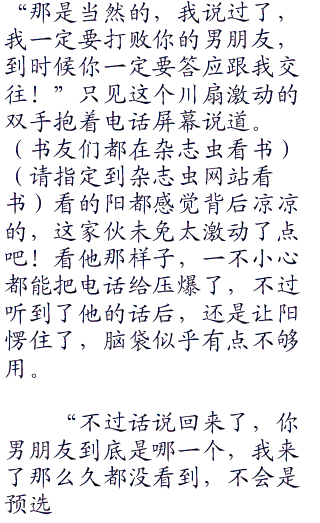 “那是当然的，我说过了，
我一定要打败你的男朋友，
到时候你一定要答应跟我交
往！”只见这个川扇激动的
双手抱着电话屏幕说道。
（书友们都在杂志虫看书）
（请指定到杂志虫网站看
书）看的阳都感觉背后凉凉
的，这家伙未免太激动了点
吧！看他那样子，一不小心
都能把电话给压爆了，不过
听到了他的话后，还是让阳
愣住了，脑袋似乎有点不够
用。
“不过话说回来了，你
男朋友到底是哪一个，我来
了那么久都没看到，不会是
预选